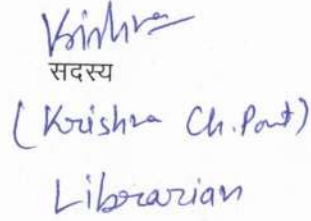 Krishna
सदस्य
(Krishna Ch. Pant)
Librarian